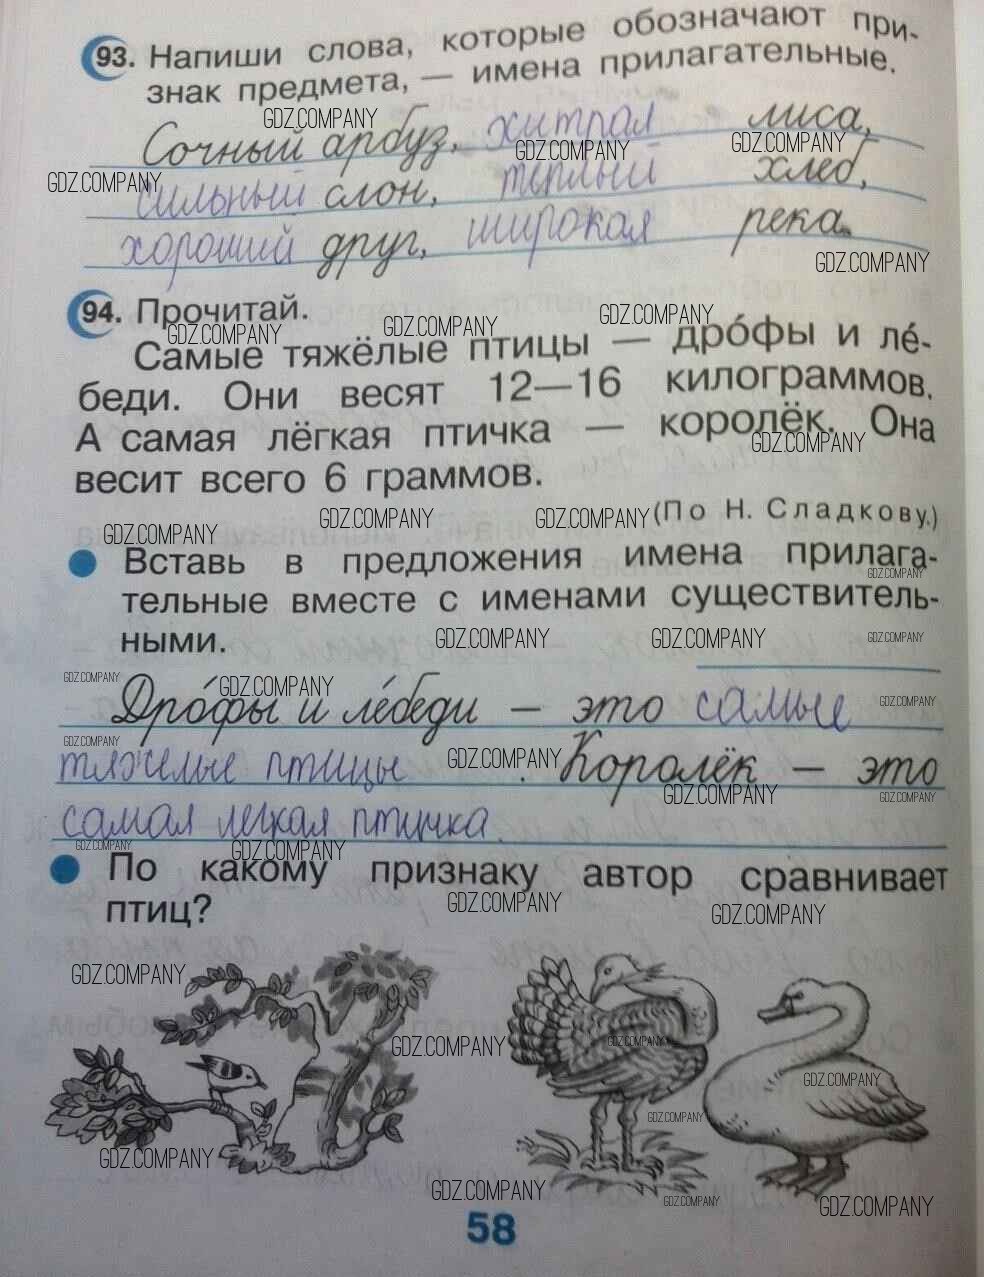 93. Напиши слова, которые обозначают при-
знак предмета, — имена прилагательные.
Сочный арбуз, хитрая лиса,
сильный слон, теплый хлеб,
хороший друг, широкая река.
94. Прочитай.
Самые тяжёлые птицы — дро́фы и ле́-
беди. Они весят 12—16 килограммов.
А самая лёгкая птичка — королёк. Она
весит всего 6 граммов.
(По Н. Сладкову.)
Вставь в предложения имена прилага-
тельные вместе с именами существитель-
ными.
Дро́фы и ле́беди — это самые
тяжелые птицы. Королёк — это
самая легкая птичка.
По какому признаку автор сравнивает
птиц?
58
GDZ.COMPANY